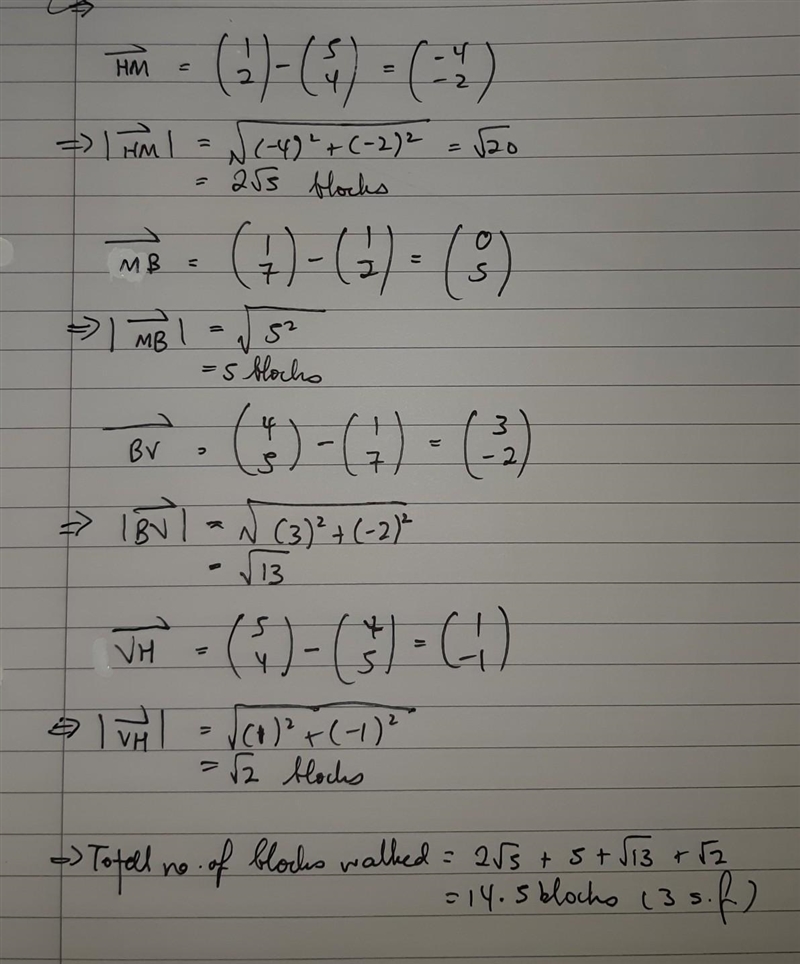 ⇒
HM⃗ = (1 2) - (5 4) = (-4 -2)
⇒ |HM⃗| = √((-4)² + (-2)²) = √20
= 2√5 blocks
MB⃗ = (1 7) - (1 2) = (0 5)
⇒ |MB⃗| = √(5²)
= 5 blocks
BV⃗ = (4 5) - (1 7) = (3 -2)
⇒ |BV⃗| = √((3)² + (-2)²)
= √13
VH⃗ = (5 4) - (4 5) = (1 -1)
⇒ |VH⃗| = √((1)² + (-1)²)
= √2 blocks
⇒ Totall no. of blocks walked = 2√5 + 5 + √13 + √2
= 14.5 blocks (3 s.f.)